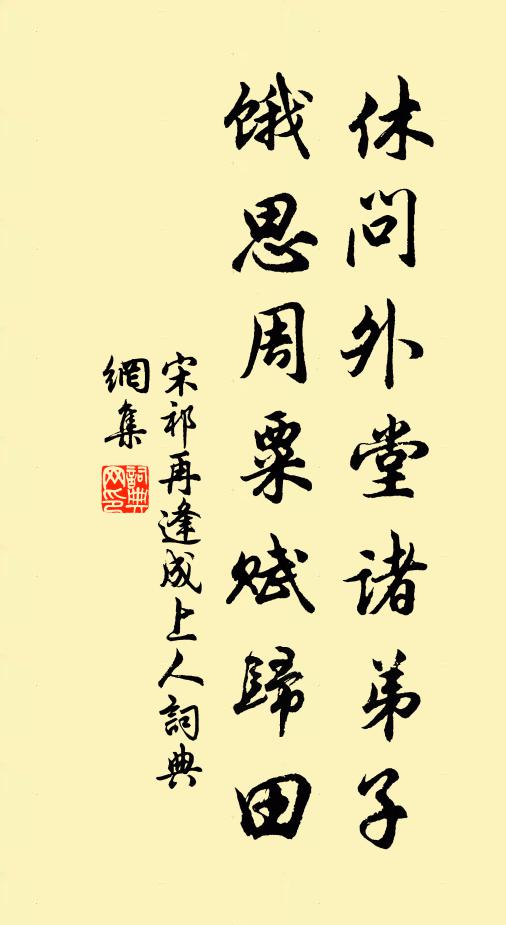 休問外堂諸弟子
餓思周粟賦歸田
宋祁再逢成上人詞典
網集
詞典
网印